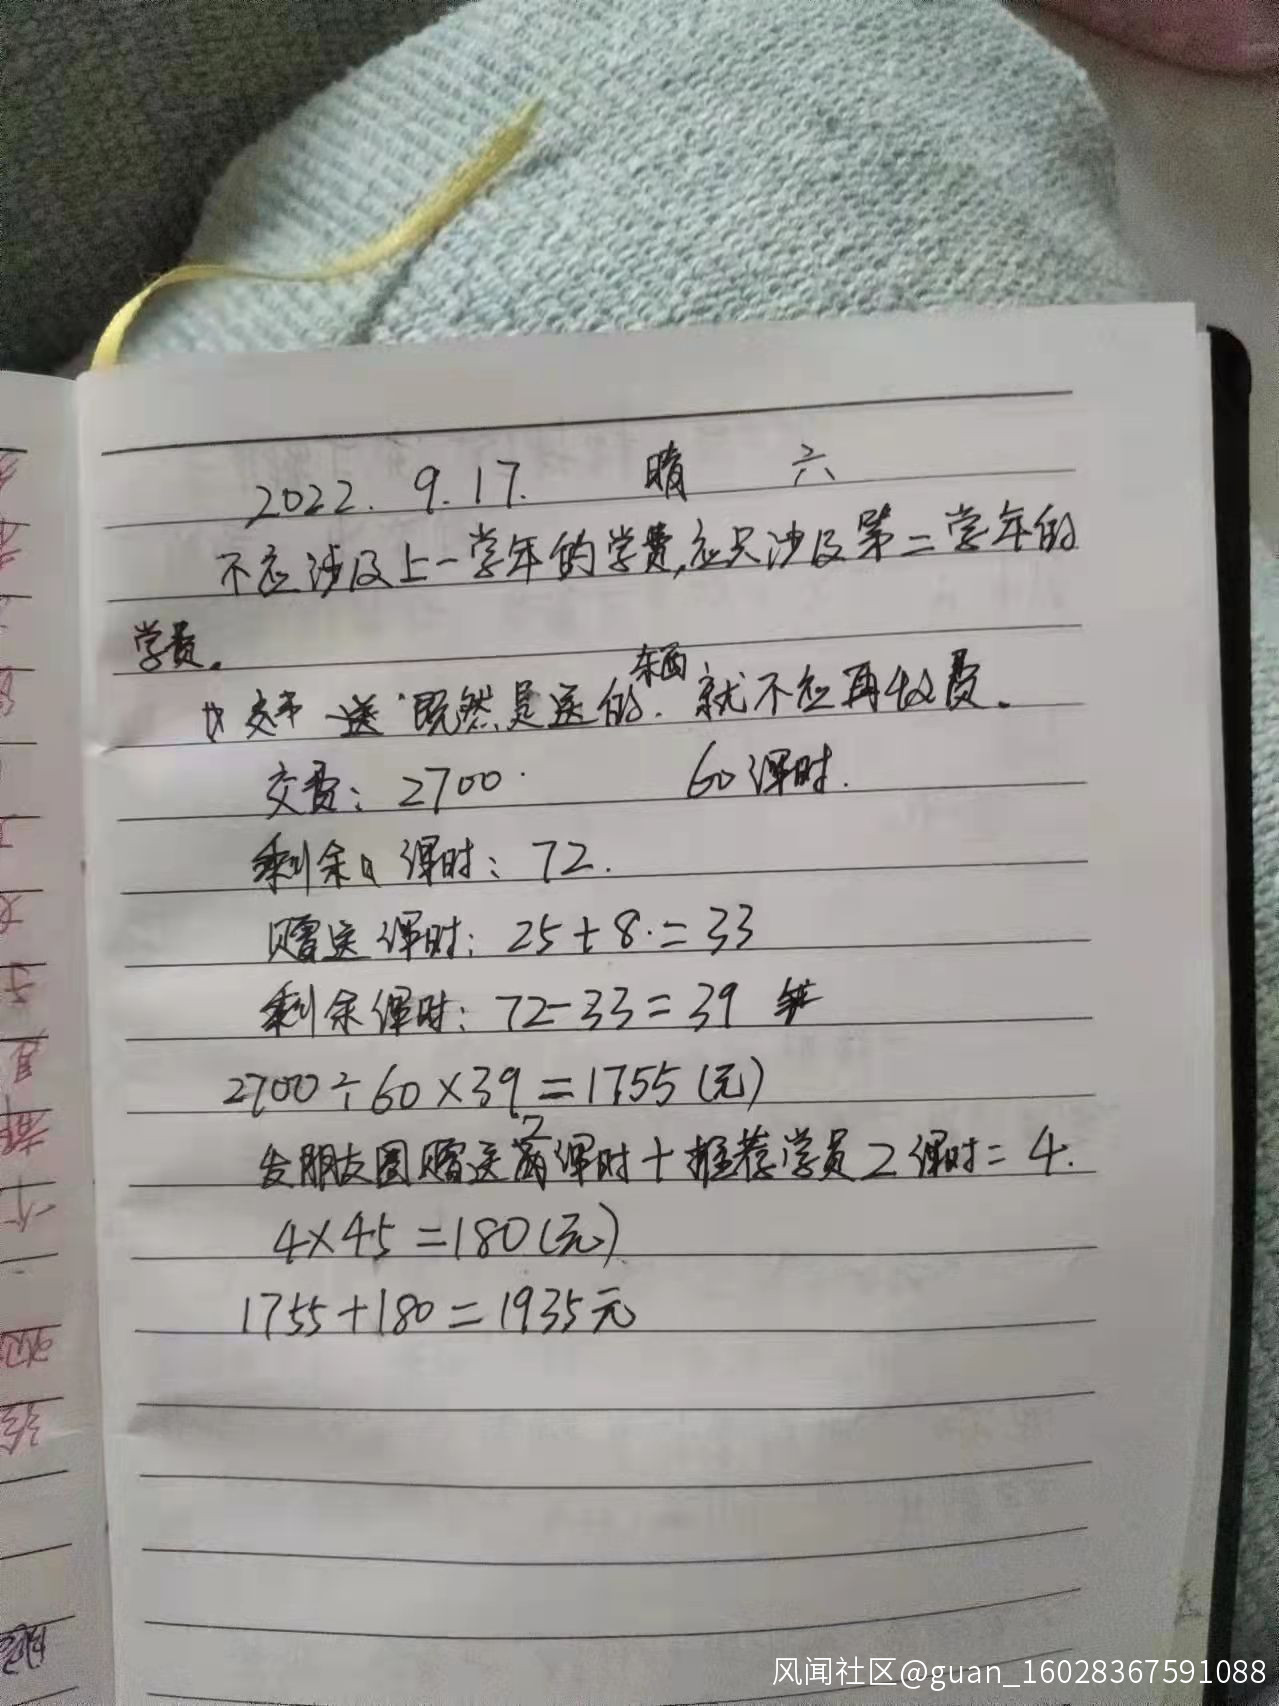 2022. 9. 17. 晴 六
不应涉及上一学年的学费,应只涉及第二学年的
学费。
送 既然是送的东西 就不应再收费。
交费: 2700. 60课时.
剩余 课时: 72.
赠送课时: 25+8.=33
剩余课时: 72-33=39
2700÷60×39=1755(元)
发朋友圈赠送2课时+推荐学员2课时=4.
4×45=180(元)
1755+180=1935元
风闻社区@guan_16028367591088